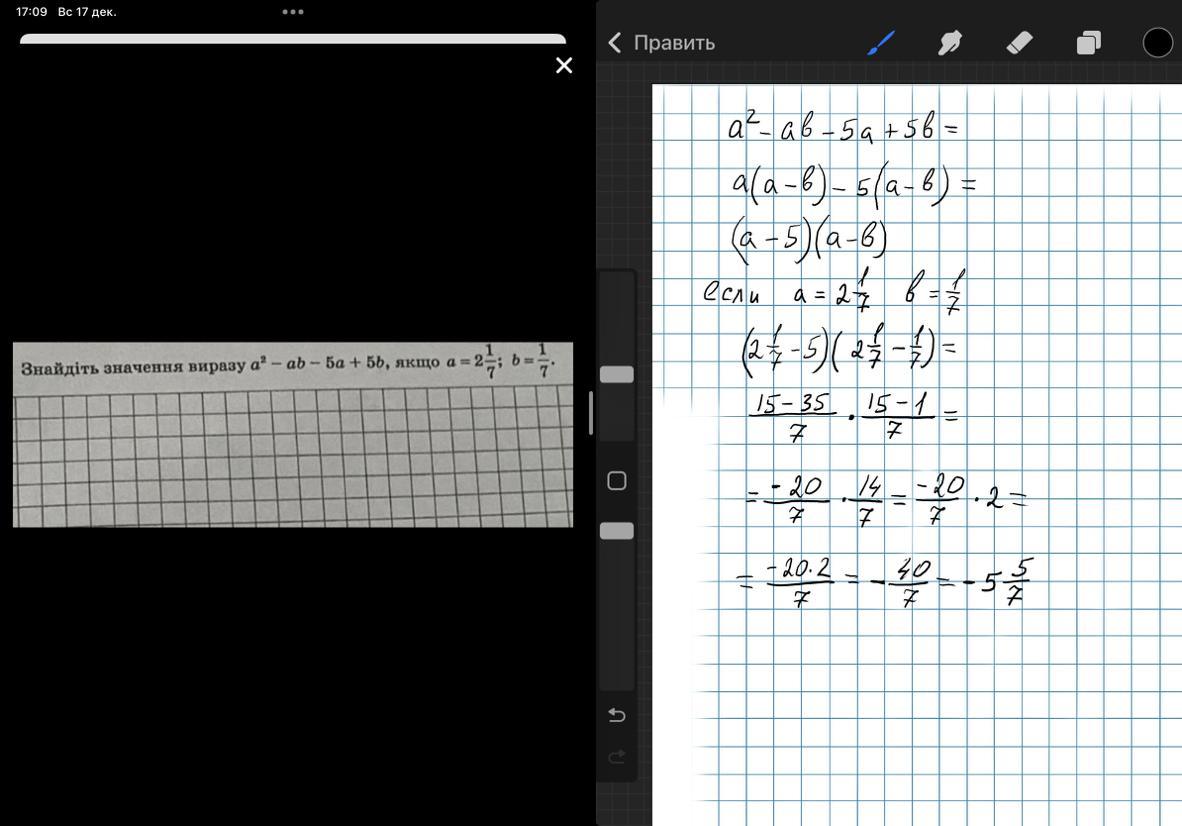 17:09 Вс 17 дек.
Знайдіть значення виразу a² − ab − 5a + 5b, якщо a = 2 1/7; b = 1/7.
Править
a² - ab - 5a + 5b =
a(a - b) - 5(a - b) =
(a - 5)(a - b)
если a = 2 1/7 b = 1/7
(2 1/7 - 5)(2 1/7 - 1/7) =
15 - 35/7 · 15 - 1/7 =
= -20/7 · 14/7 = -20/7 · 2 =
= -20·2/7 = - 40/7 = - 5 5/7